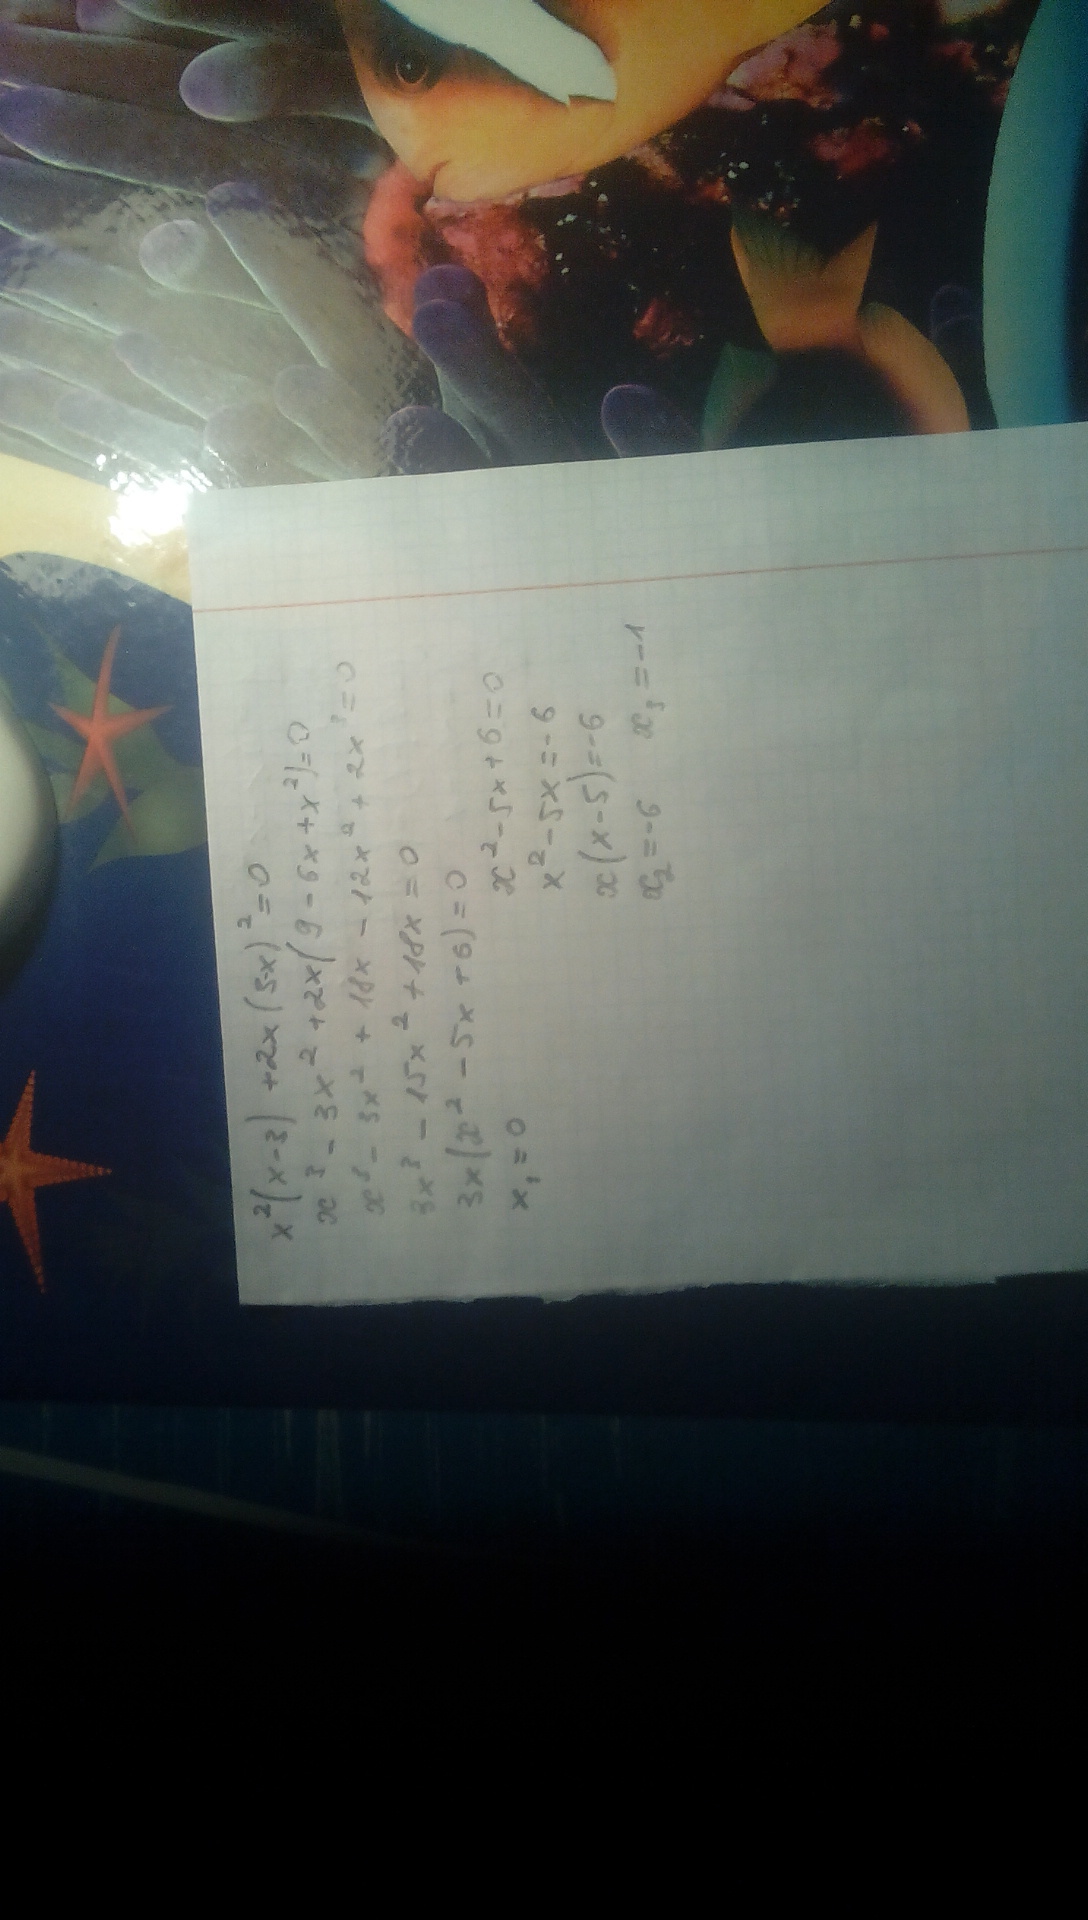 x²(x-3)+2x(3-x)²=0
x³-3x²+2x(9-6x+x²)=0
x³-3x²+18x-12x²+2x³=0
3x³-15x²+18x=0
3x(x²-5x+6)=0
x₁=0
x²-5x+6=0
x²-5x=-6
x(x-5)=-6
x₂=-6 x₃=-1